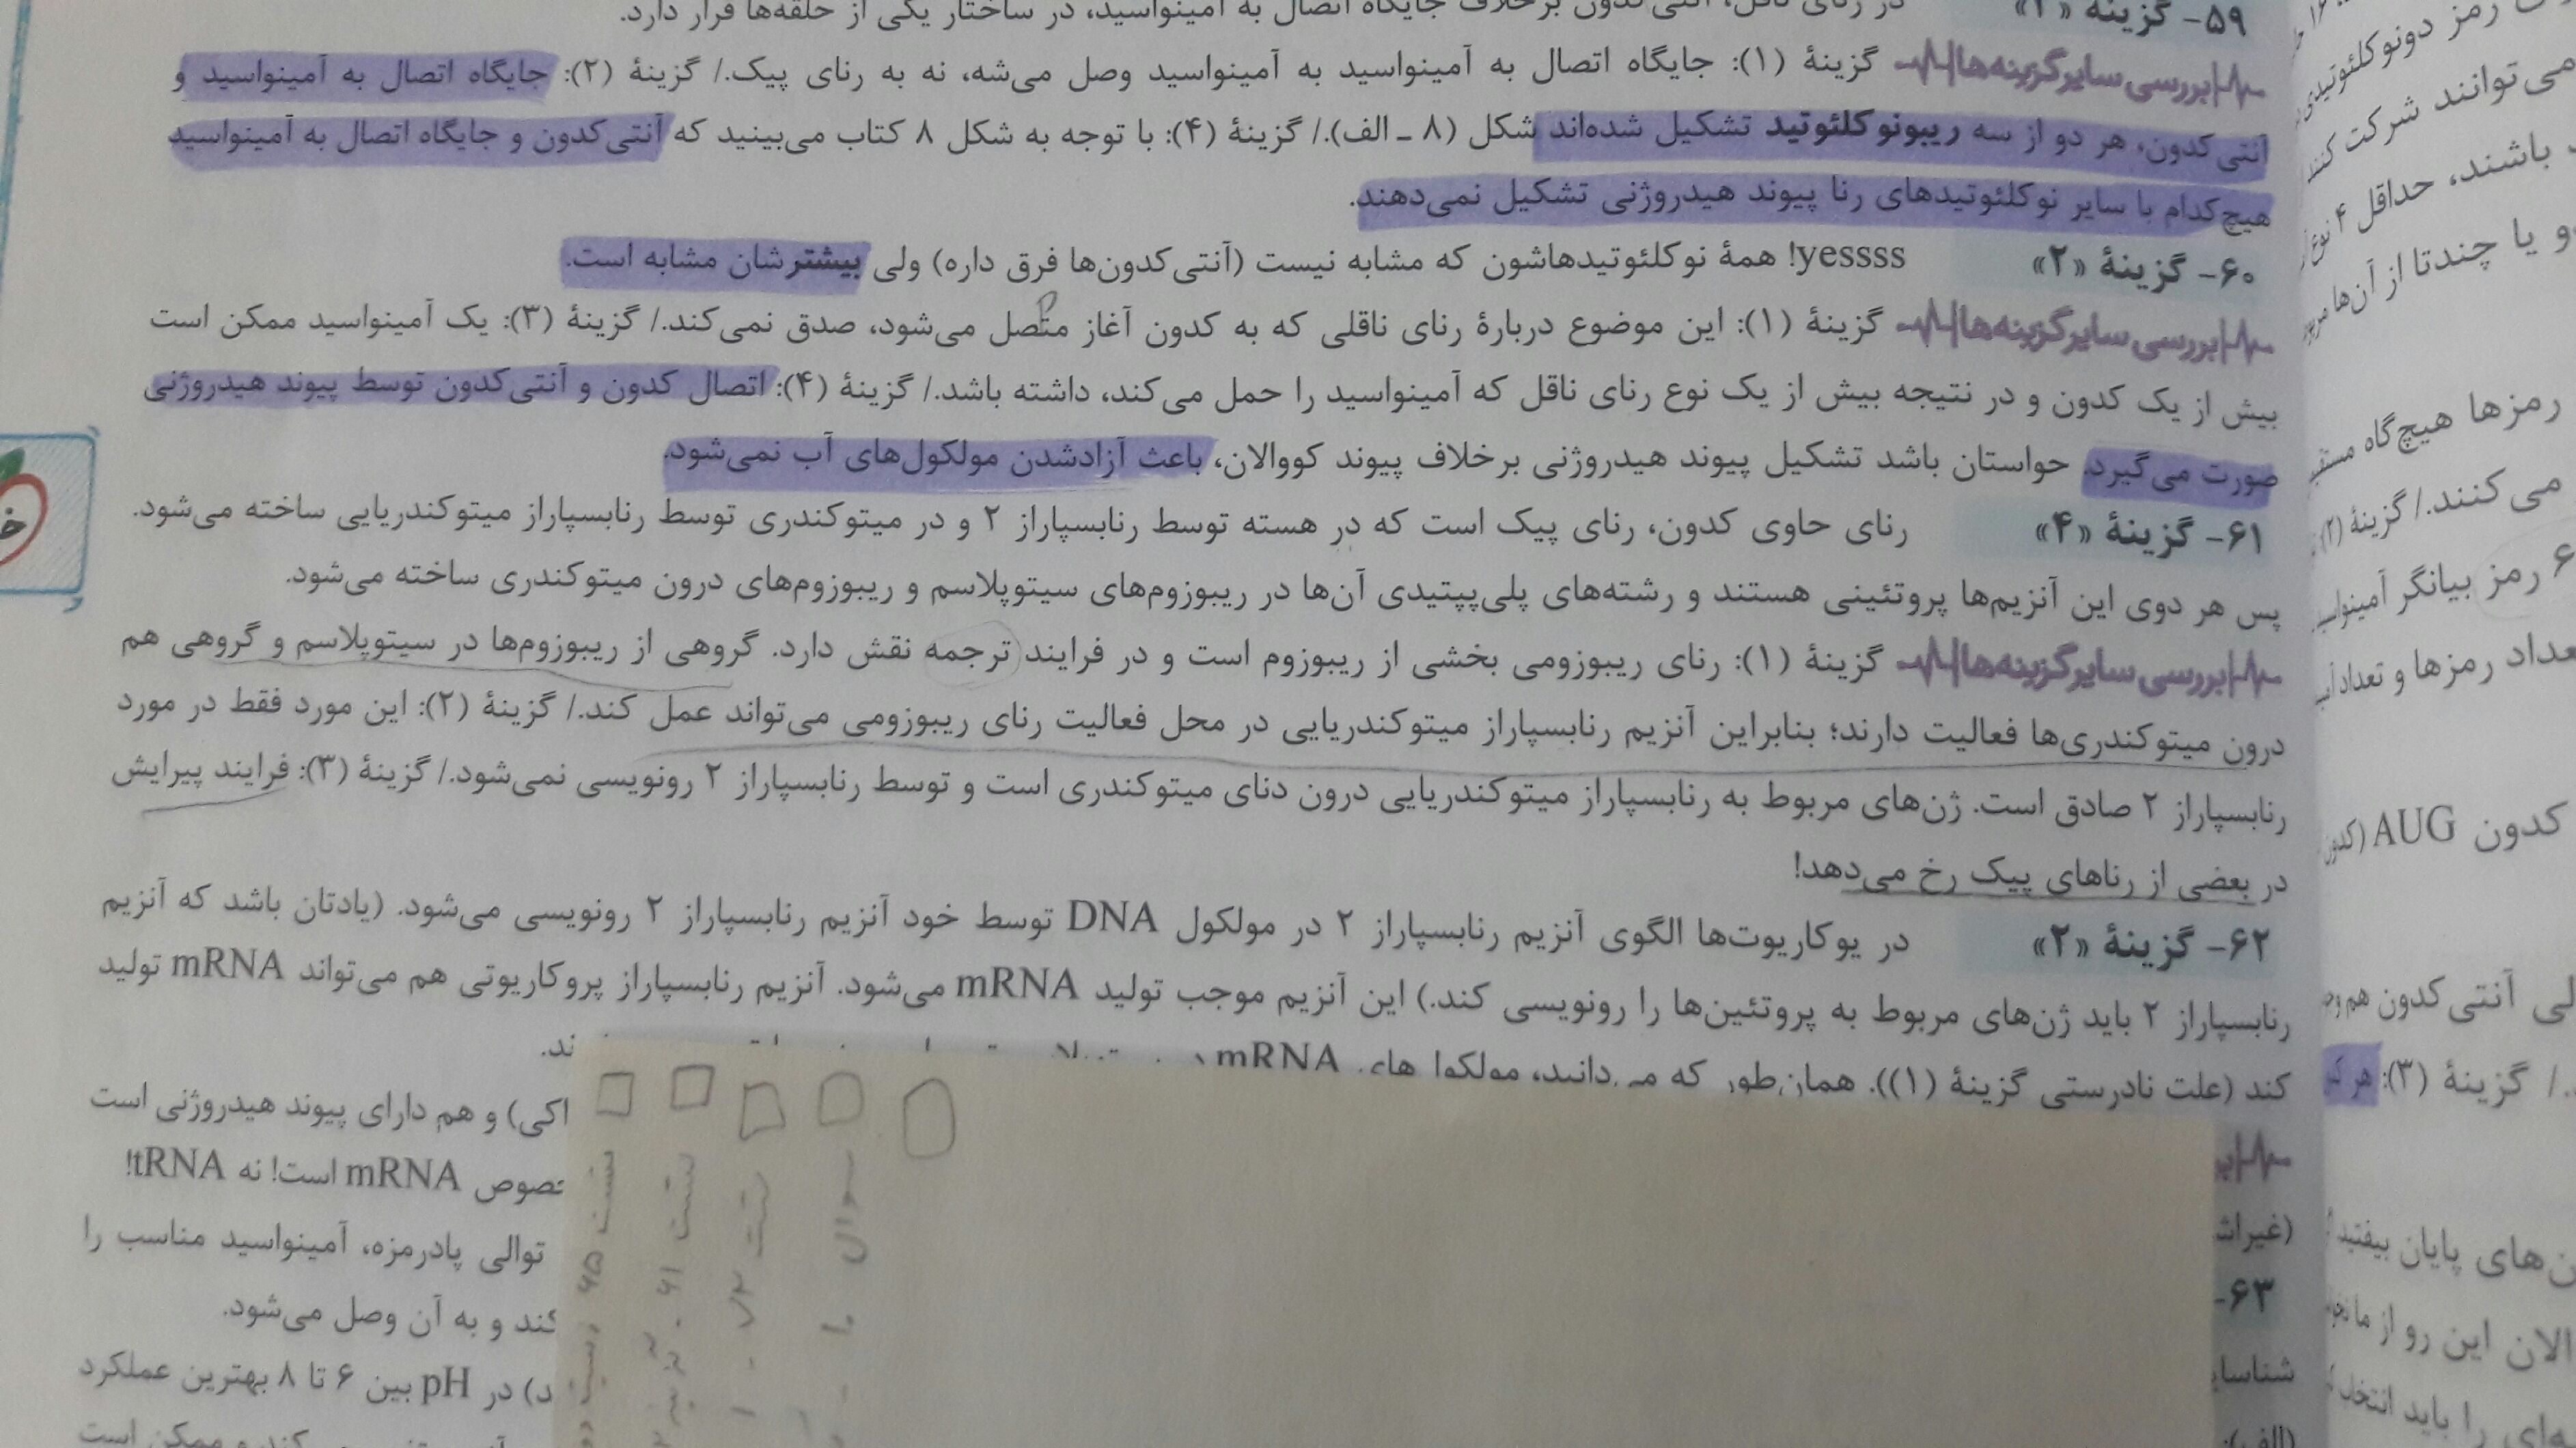 ۵۹- گزینهٔ در رنای ناقل، آنتی‌کدون برخلاف جایگاه اتصال به آمینواسید، در ساختار یکی از حلقه‌ها قرار دارد.
بررسی سایر گزینه‌ها گزینهٔ (۱): جایگاه اتصال به آمینواسید به آمینواسید وصل می‌شه، نه به رنای پیک./ گزینهٔ (۲): جایگاه اتصال به آمینواسید و
آنتی‌کدون، هر دو از سه ریبونوکلئوتید تشکیل شده‌اند شکل (۸ ـ الف)./ گزینهٔ (۴): با توجه به شکل ۸ کتاب می‌بینید که آنتی‌کدون و جایگاه اتصال به آمینواسید
هیچ‌کدام با سایر نوکلئوتیدهای رنا پیوند هیدروژنی تشکیل نمی‌دهند.
۶۰- گزینهٔ «۲» yessss! همهٔ نوکلئوتیدهاشون که مشابه نیست (آنتی‌کدون‌ها فرق داره) ولی بیشترشان مشابه است.
بررسی سایر گزینه‌ها گزینهٔ (۱): این موضوع دربارهٔ رنای ناقلی که به کدون آغاز متصل می‌شود، صدق نمی‌کند./ گزینهٔ (۳): یک آمینواسید ممکن است
بیش از یک کدون و در نتیجه بیش از یک نوع رنای ناقل که آمینواسید را حمل می‌کند، داشته باشد./ گزینهٔ (۴): اتصال کدون و آنتی‌کدون توسط پیوند هیدروژنی
صورت می‌گیرد. حواستان باشد تشکیل پیوند هیدروژنی برخلاف پیوند کووالان، باعث آزادشدن مولکول‌های آب نمی‌شود.
۶۱- گزینهٔ «۴» رنای حاوی کدون، رنای پیک است که در هسته توسط رنابسپاراز ۲ و در میتوکندری توسط رنابسپاراز میتوکندریایی ساخته می‌شود.
پس هر دوی این آنزیم‌ها پروتئینی هستند و رشته‌های پلی‌پپتیدی آن‌ها در ریبوزوم‌های سیتوپلاسم و ریبوزوم‌های درون میتوکندری ساخته می‌شود.
بررسی سایر گزینه‌ها گزینهٔ (۱): رنای ریبوزومی بخشی از ریبوزوم است و در فرایند ترجمه نقش دارد. گروهی از ریبوزوم‌ها در سیتوپلاسم و گروهی هم
درون میتوکندری‌ها فعالیت دارند؛ بنابراین آنزیم رنابسپاراز میتوکندریایی در محل فعالیت رنای ریبوزومی می‌تواند عمل کند./ گزینهٔ (۲): این مورد فقط در مورد
رنابسپاراز ۲ صادق است. ژن‌های مربوط به رنابسپاراز میتوکندریایی درون دنای میتوکندری است و توسط رنابسپاراز ۲ رونویسی نمی‌شود./ گزینهٔ (۳): فرایند پیرایش
در بعضی از رناهای پیک رخ می‌دهد!
۶۲- گزینهٔ «۲» در یوکاریوت‌ها الگوی آنزیم رنابسپاراز ۲ در مولکول DNA توسط خود آنزیم رنابسپاراز ۲ رونویسی می‌شود. (یادتان باشد که آنزیم
رنابسپاراز ۲ باید ژن‌های مربوط به پروتئین‌ها را رونویسی کند.) این آنزیم موجب تولید mRNA می‌شود. آنزیم رنابسپاراز پروکاریوتی هم می‌تواند mRNA تولید
کند (علت نادرستی گزینهٔ (۱)). همان‌طور که می‌دانید، مولکول‌های mRNA
اکی) و هم دارای پیوند هیدروژنی است
mRNA است! نه tRNA!
(غیراش
توالی پادرمزه، آمینواسید مناسب را
۶۳-
کند و به آن وصل می‌شود.
شناسای
د) در pH بین ۶ تا ۸ بهترین عملکرد
(الف):
رمز دونوکلئوتیدی
می‌توانند شرکت کنند
باشند، حداقل ۴ نوع
و یا چندتا از آن‌ها
رمزها هیچ‌گاه
می‌کنند./ گزینهٔ (۲):
۶ رمز بیانگر
تعداد رمزها و تعداد
کدون AUG (کدون
آنتی‌کدون هم
./ گزینهٔ (۳): هر
پایان بیفتید
این رو از ما
را باید انتخاب
تست ۶۵
تست ۶۱
تست
سوال